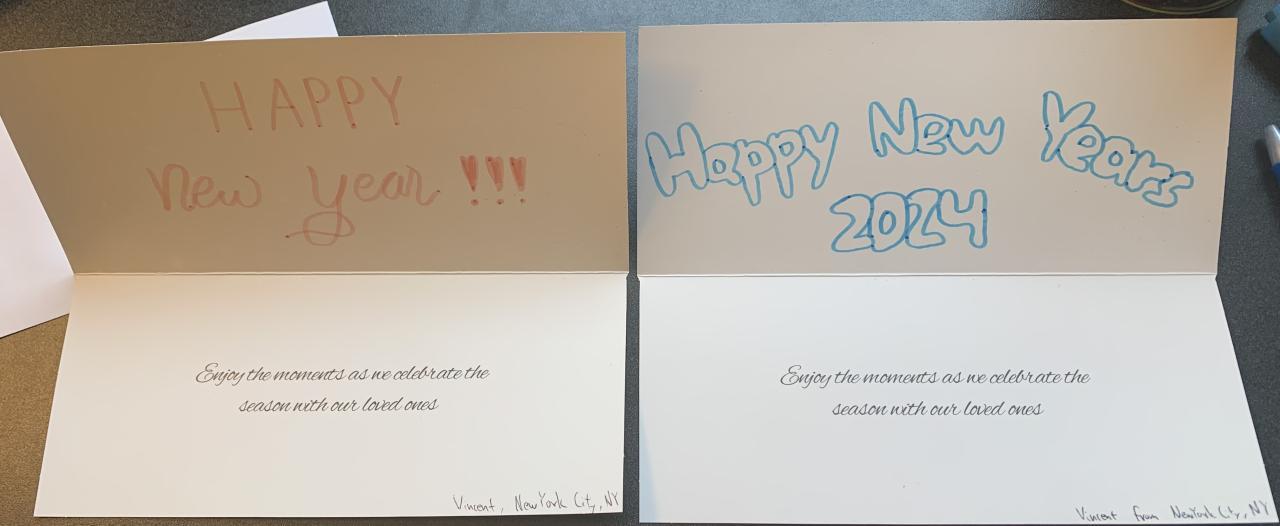 HAPPY
New Year !!!
Enjoy the moments as we celebrate the
season with our loved ones
Vincent, New York City, NY
Happy New Years
2024
Enjoy the moments as we celebrate the
season with our loved ones
Vincent from New York City, NY